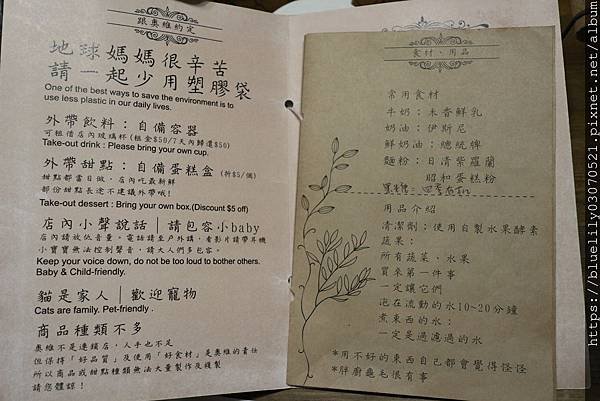 跟奧維約定
地球媽媽很辛苦
請一起少用塑膠袋
One of the best ways to save the environment is to
use less plastic in our daily lives.
外帶飲料：自備容器
可租借店內玻璃杯(租金$50/7天內歸還$50)
Take-out drink : Please bring your own cup.
外帶甜點：自備蛋糕盒 (折$5/個)
甜點都當日做，店內吃最新鮮
部份甜點長途不建議外帶哦!
Take-out dessert : Bring your own box.(Discount $5 off)
店內小聲說話｜請包容小baby
店內請放低音量。電話請至戶外講，看影片請帶耳機
小寶寶無法控制聲音，請大人們多包容。
Keep your voice down, do not be too loud to bother others.
Baby & Child-friendly.
貓是家人｜歡迎寵物
Cats are family. Pet-friendly .
商品種類不多
奧維不是連鎖店，人手也不足
但保持「好品質」及使用「好食材」是奧維的責任
所以商品或甜點種類無法大量製作及複製
請您體諒！
食材、用品
常用食材
牛奶：禾香鮮乳
奶油：伊斯尼
鮮奶油：總統牌
麵粉：日清紫羅蘭
昭和蛋糕粉
用品介紹
清潔劑：使用自製水果酵素
蔬果：
所有蔬菜、水果
買來第一件事
一定讓它們
泡在流動的水10~20分鐘
煮東西的水：
一定是過濾過的水
*用不好的東西自己都會覺得怪怪
*胖廚龜毛很有事
http://bluelily03070521.pixnet.net/album